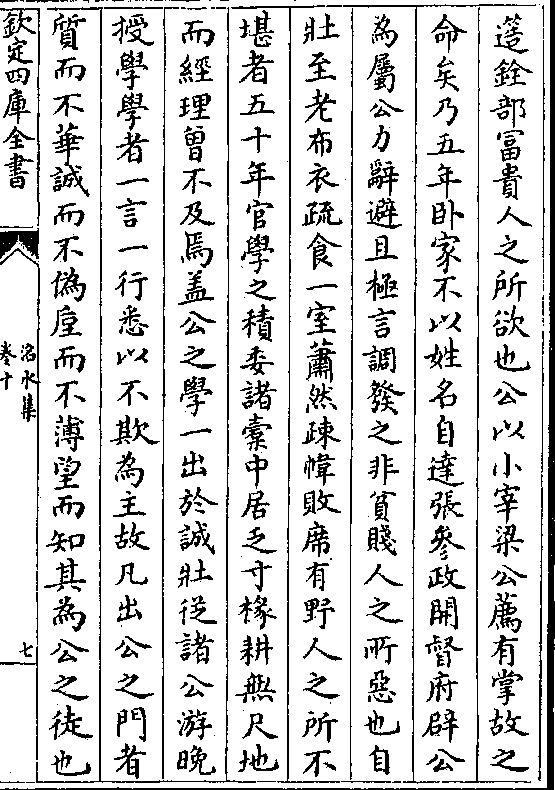 簉銓部富貴人之所欲也公以小宰梁公薦有掌故之
命矣乃五年卧家不以姓名自達張參政開督府辟公
為屬公力辭避且極言調發之非貧賤人之所惡也自
壯至老布衣疏食一室蕭然疎幃敗席有野人之所不
堪者五十年官學之積委諸橐中居乏寸椽耕無尺地
而經理曾不及焉盖公之學一出於誠壯從諸公游晚
授學學者一言一行悉以不欺為主故凡出公之門者
質而不華誠而不偽厚而不薄望而知其為公之徒也
欽定四庫全書
洺水集
卷十
七